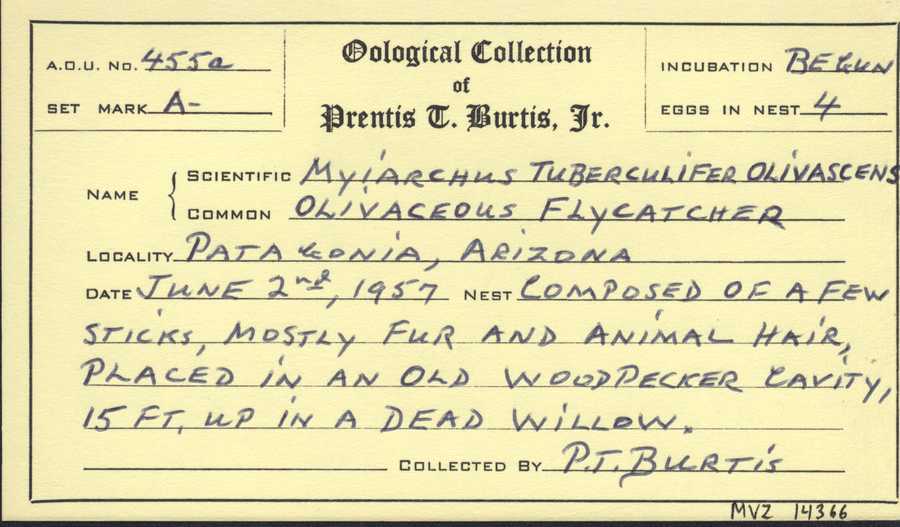 A.O.U. No. 455a
Oological Collection
INCUBATION BEGUN
SET MARK A-
of
EGGS IN NEST 4
Prentis T. Burtis, Jr.
NAME { SCIENTIFIC MYIARCHUS TUBERCULIFER OLIVASCENS
COMMON OLIVACEOUS FLYCATCHER
LOCALITY PATAGONIA, ARIZONA
DATE JUNE 2nd, 1957 NEST COMPOSED OF A FEW
STICKS, MOSTLY FUR AND ANIMAL HAIR,
PLACED IN AN OLD WOODPECKER CAVITY,
15 FT. UP IN A DEAD WILLOW.
COLLECTED BY P.T. BURTIS
MVZ 14366